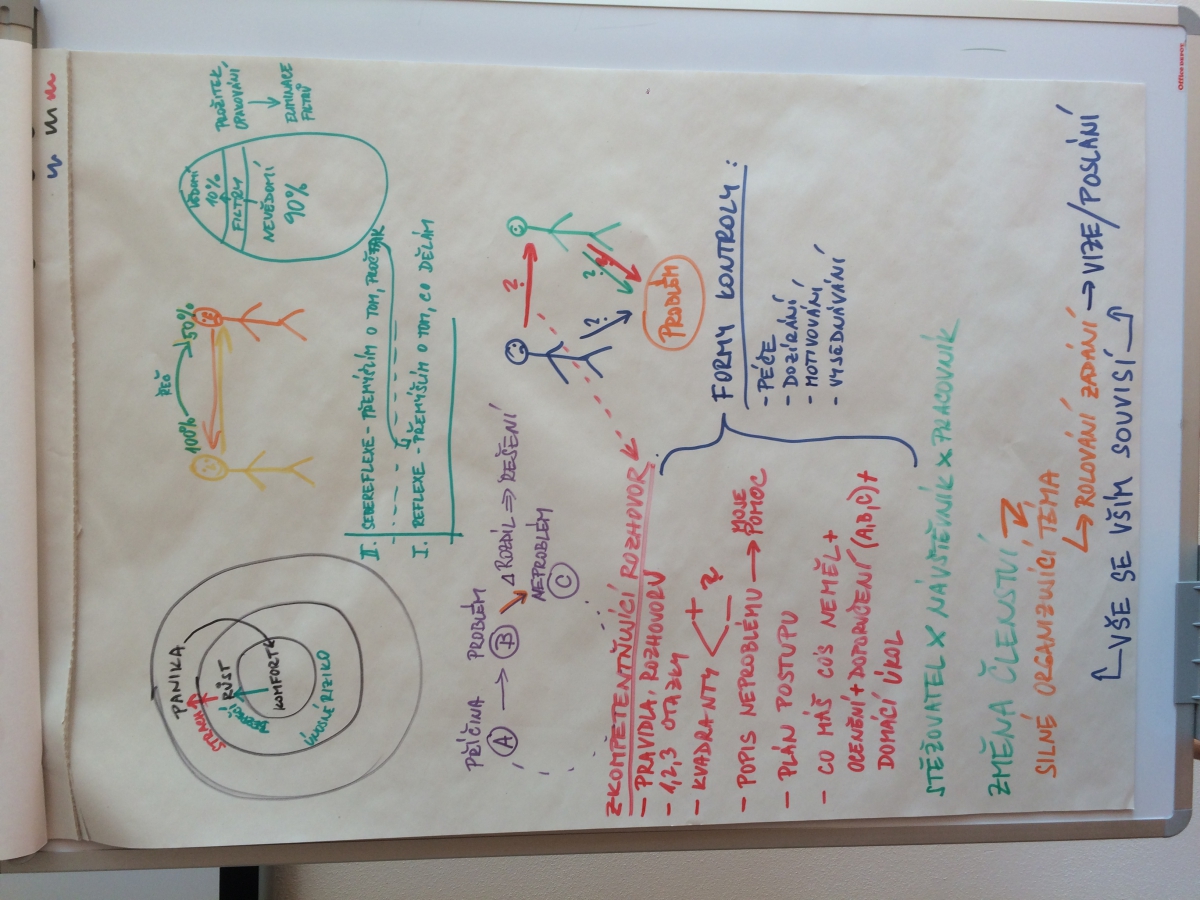 PANIKA
STRACH
RŮST
KOMFORT
ÚNOSNÉ RIZIKO
100%
ŘEČ
50%
VĚDOMÍ
10%
FILTRY
NEVĚDOMÍ
90%
PROŽITEK,
OPAKOVÁNÍ
ELIMINACE
FILTRŮ
II. SEBEREFLEXE - PŘEMÝŠLÍM O TOM, PROČ TAK
I. REFLEXE - PŘEMÝŠLÍM O TOM, CO DĚLÁM
PŘÍČINA PROBLÉM
A → B Δ ROZDÍL ⇒ ŘEŠENÍ
NEPROBLÉM
C
?
?
?
PROBLÉM
ZKOMPETENTŇUJÍCÍ ROZHOVOR
- PRAVIDLA ROZHOVORU
- 1,2,3 OTÁZKY
- KVADRANTY < + - ?
- POPIS NEPROBLÉMU → MOJE POMOC
- PLÁN POSTUPU
- CO MÁŠ CO'S NEMĚL +
OCENĚNÍ + DOPORUČENÍ (A,B,C) +
DOMÁCÍ ÚKOL
FORMY KONTROLY:
- PÉČE
- DOZÍRÁNÍ
- MOTIVOVÁNÍ
- VYJEDNÁVÁNÍ
STĚŽOVATEL × NÁVŠTĚVNÍK × PRACOVNÍK
ZMĚNA ČLENSTVÍ
SILNÉ ORGANIZUJÍCÍ TÉMA
↳ ROLOVÁNÍ ZADÁNÍ → VIZE/POSLÁNÍ
VŠE SE VŠÍM SOUVISÍ
Office DEPOT